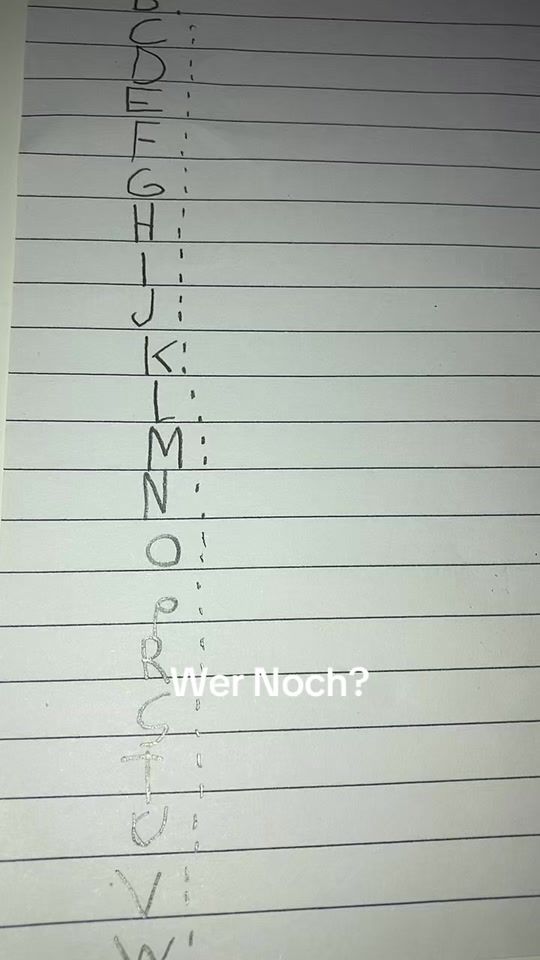 C :
D :
E :
F :
G :
H :
I :
J :
K :
L :
M :
N :
O :
P :
R :
S :
T :
U :
V :
W
Wer Noch?